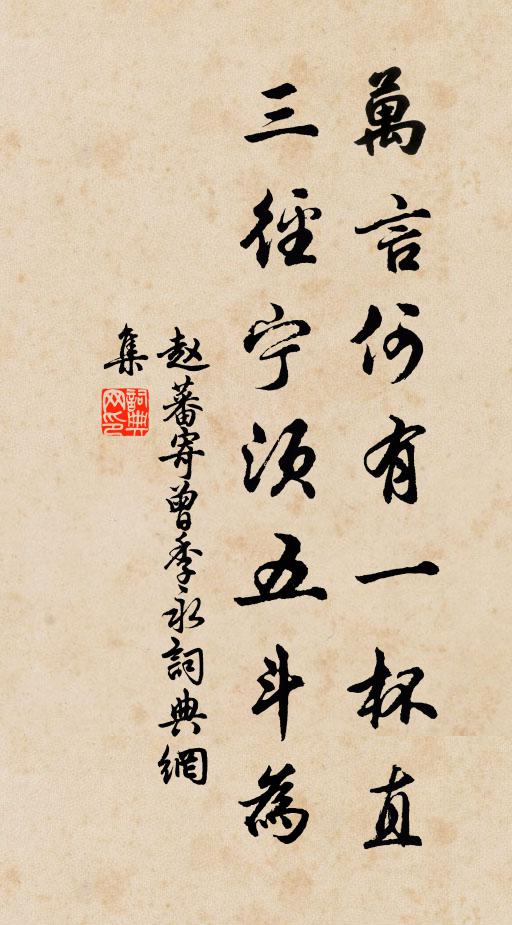 萬言何有一杯直
三徑宁須五斗為
赵蕃寄曾季永詞典網
集
詞典
网印